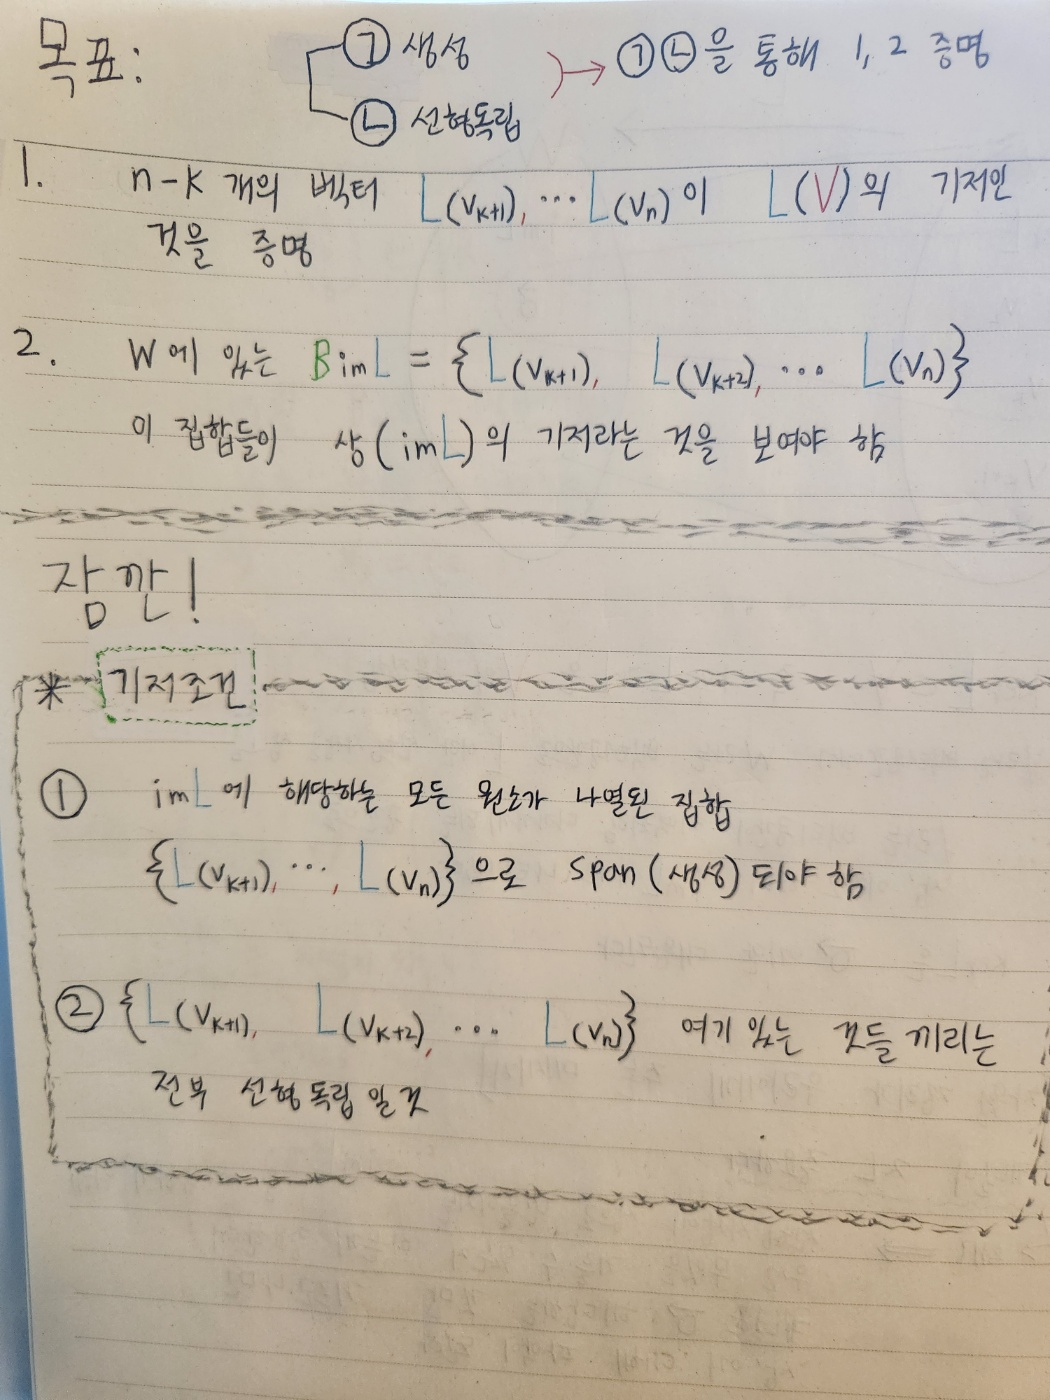 목표:
㉠ 생성
㉡ 선형독립
㉠㉡을 통해 1, 2 증명
1. n-k 개의 벡터 L(Vk+1), ... L(Vn)이 L(V)의 기저인
것을 증명
2. W에 있는 BimL = {L(Vk+1), L(Vk+2), ... L(Vn)}
이 집합들이 상(imL)의 기저라는 것을 보여야 함
잠깐!
* 기저조건
① imL에 해당하는 모든 원소가 나열된 집합
{L(Vk+1), ..., L(Vn)}으로 span(생성)되야 함
② {L(Vk+1), L(Vk+2), ... L(Vn)} 여기 있는 것들 끼리는
전부 선형독립 일 것